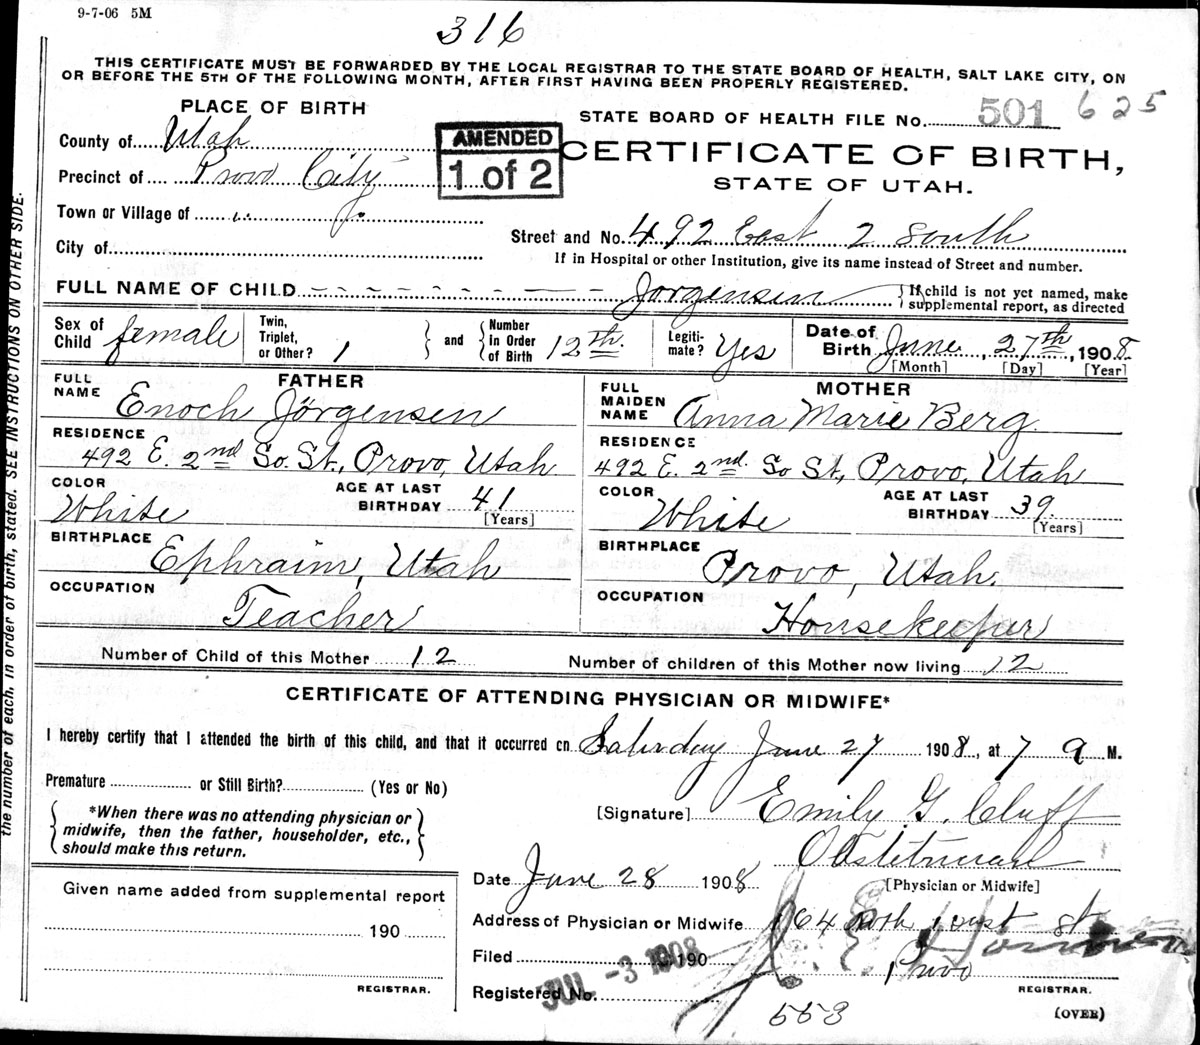 9-7-06 5M
316
THIS CERTIFICATE MUST BE FORWARDED BY THE LOCAL REGISTRAR TO THE STATE BOARD OF HEALTH, SALT LAKE CITY, ON
OR BEFORE THE 5TH OF THE FOLLOWING MONTH, AFTER FIRST HAVING BEEN PROPERLY REGISTERED.
PLACE OF BIRTH
STATE BOARD OF HEALTH FILE No. 501 625
County of Utah
AMENDED
1 of 2
CERTIFICATE OF BIRTH,
STATE OF UTAH.
Precinct of Provo City
Town or Village of " "
Street and No. 492 East 2 South
City of
If in Hospital or other Institution, give its name instead of Street and number.
FULL NAME OF CHILD Jorgensen { If child is not yet named, make
supplemental report, as directed
Sex of Child female
Twin, Triplet, or Other? 1 } and { Number in Order of Birth 12th.
Legiti-mate? Yes
Date of Birth June, 27th, 1908.
[Month] [Day] [Year]
FATHER
FULL NAME Enoch Jörgensen
MOTHER
FULL MAIDEN NAME Anna Marie Berg.
RESIDENCE
492 E. 2nd So. St., Provo, Utah
RESIDENCE
492 E. 2nd. So St., Provo, Utah
COLOR White
AGE AT LAST BIRTHDAY 41
[Years]
COLOR White
AGE AT LAST BIRTHDAY 39.
[Years]
BIRTHPLACE
Ephraim, Utah
BIRTHPLACE
Provo, Utah.
OCCUPATION
Teacher
OCCUPATION
Housekeeper
Number of Child of this Mother 12
Number of children of this Mother now living 12
CERTIFICATE OF ATTENDING PHYSICIAN OR MIDWIFE*
I hereby certify that I attended the birth of this child, and that it occurred on Saturday June 27 1908, at 7 a M.
Premature or Still Birth? (Yes or No)
[Signature] Emily G. Cluff
{ *When there was no attending physician or
midwife, then the father, householder, etc.,
should make this return. }
Obstetrician
[Physician or Midwife]
Date June 28 1908
Given name added from supplemental report
190
REGISTRAR.
Address of Physician or Midwife 164 North 1 west st
Provo
Filed 190
JUL -3 1908
REGISTRAR.
Registered No. 553
(OVER)
the number of each, in order of birth, stated. SEE INSTRUCTIONS ON OTHER SIDE.